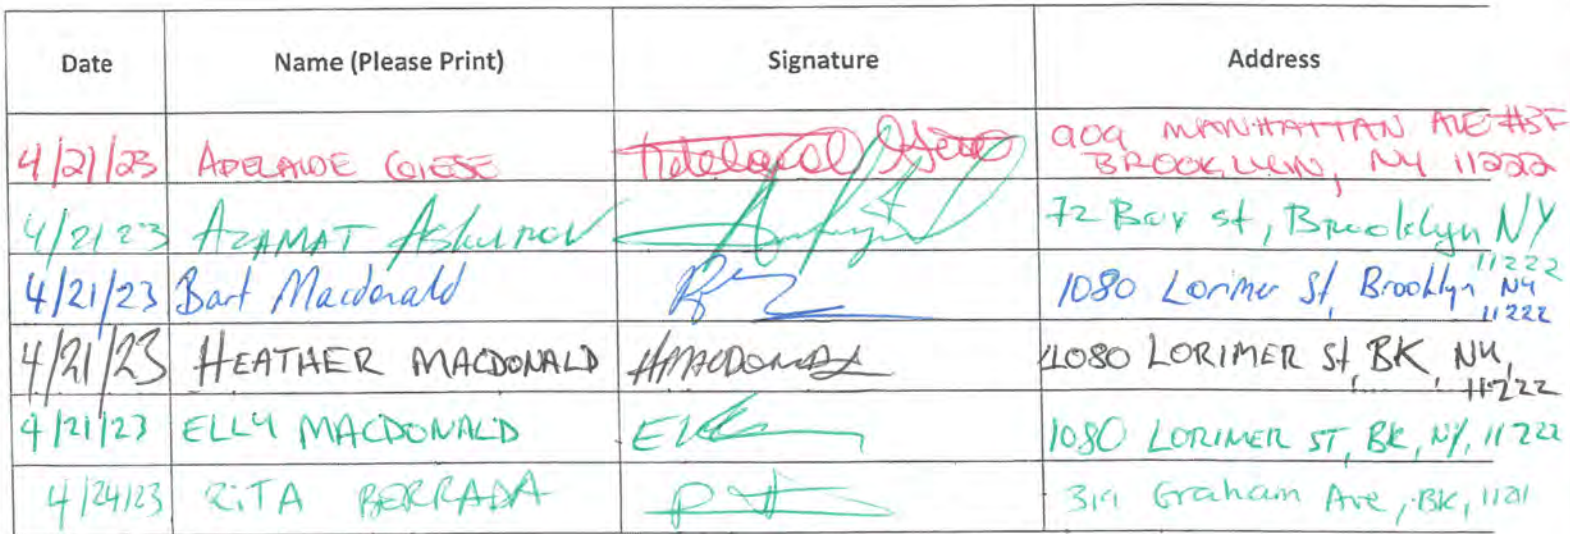 Date Name (Please Print) Signature Address
4/21/23 ADELAIDE GIESE 909 MANHATTAN AVE #3F
BROOKLYN, NY 11222
4/21/23 AZAMAT Askurov 72 Box st, Brooklyn NY
11222
4/21/23 Bart Macdonald 1080 Lorimer St, Brooklyn NY
11222
4/21/23 HEATHER MACDONALD HMACDONALD 1080 LORIMER St, BK, NY,
11222
4/21/23 ELLY MACDONALD 1080 LORIMER ST, BK, NY, 11222
4/24/23 RITA BERRADA Graham Ave, BK, 11211